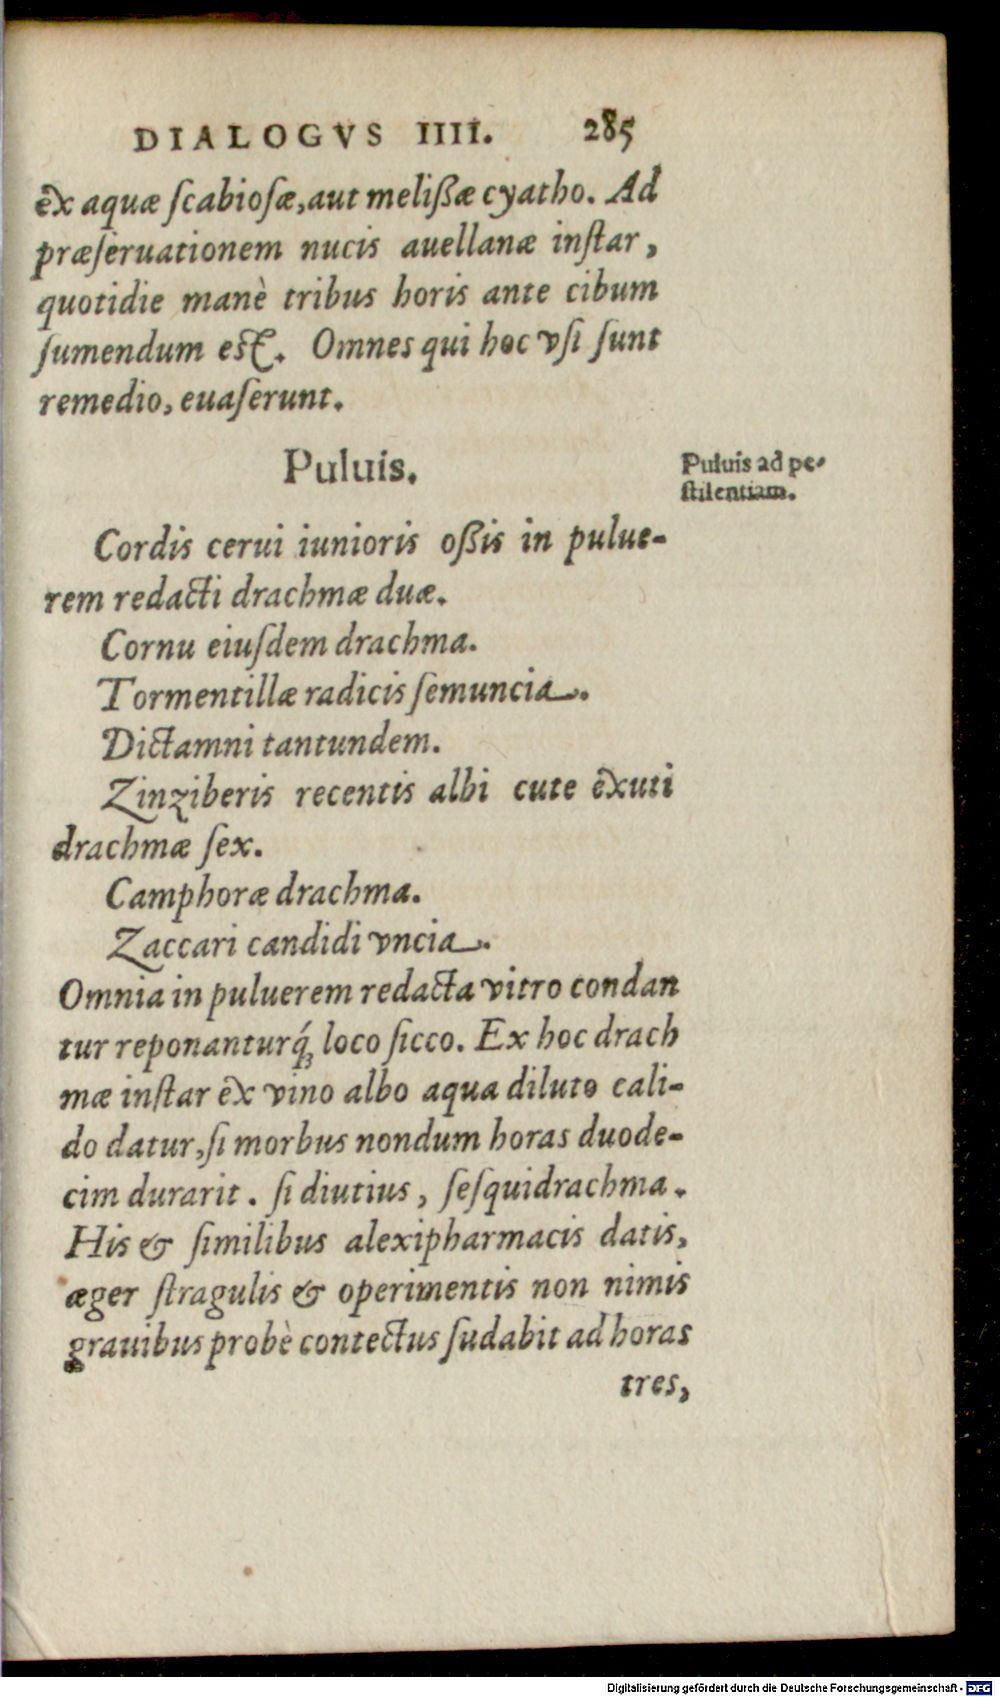 DIALOGVS IIII. 285
ex aquæ ſcabioſæ, aut melißæ cyatho. Ad
præſeruationem nucis auellanæ inſtar,
quotidie manè tribus horis ante cibum
ſumendum eſt. Omnes qui hoc vſi ſunt
remedio, euaſerunt.
Puluis.
Puluis ad pe-
ſtilentiam.
Cordis cerui iunioris oßis in pulue-
rem redacti drachmæ duæ.
Cornu eiuſdem drachma.
Tormentillæ radicis ſemuncia.
Dictamni tantundem.
Zinziberis recentis albi cute exuti
drachmæ ſex.
Camphoræ drachma.
Zaccari candidi vncia.
Omnia in puluerem redacta vitro condan
tur reponanturq́; loco ſicco. Ex hoc drach
mæ inſtar ex vino albo aqua diluto cali-
do datur, ſi morbus nondum horas duode-
cim durarit. ſi diutius, ſeſquidrachma.
His & ſimilibus alexipharmacis datis,
æger ſtragulis & operimentis non nimis
grauibus probè contectus ſudabit ad horas
tres,
Digitalisierung gefördert durch die Deutsche Forschungsgemeinschaft - DFG